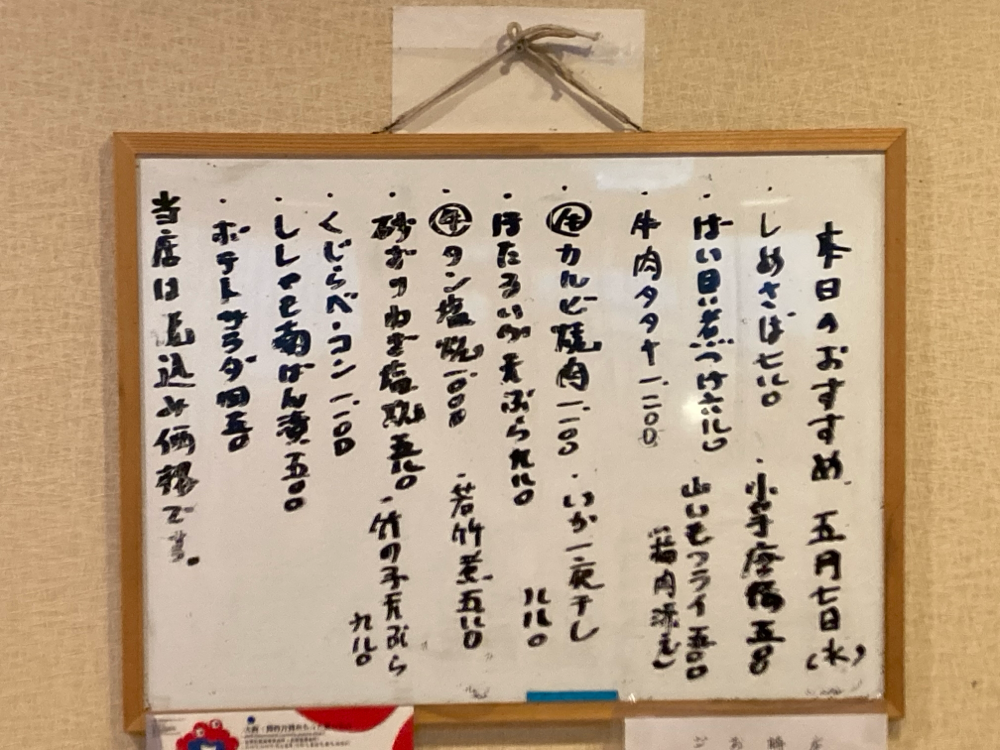 本日のおすすめ 五月七日(水)
・しめさば七八〇
・小芋唐揚
・ばい貝煮つけ六八〇
・山いもフライ五〇〇
・牛肉タタキ一、二〇〇
・牛カルビ焼肉
・いか一夜干し
八八〇
・ほたるいか天ぷら九八〇
・牛タン塩焼
・若竹煮五八〇
・砂ずりねぎ塩焼五八〇
・竹の子天ぷら
九八〇
・くじらベーコン
・ししゃも南ばん漬五〇〇
・ポテトサラダ四五〇
当店は税込み価格です。